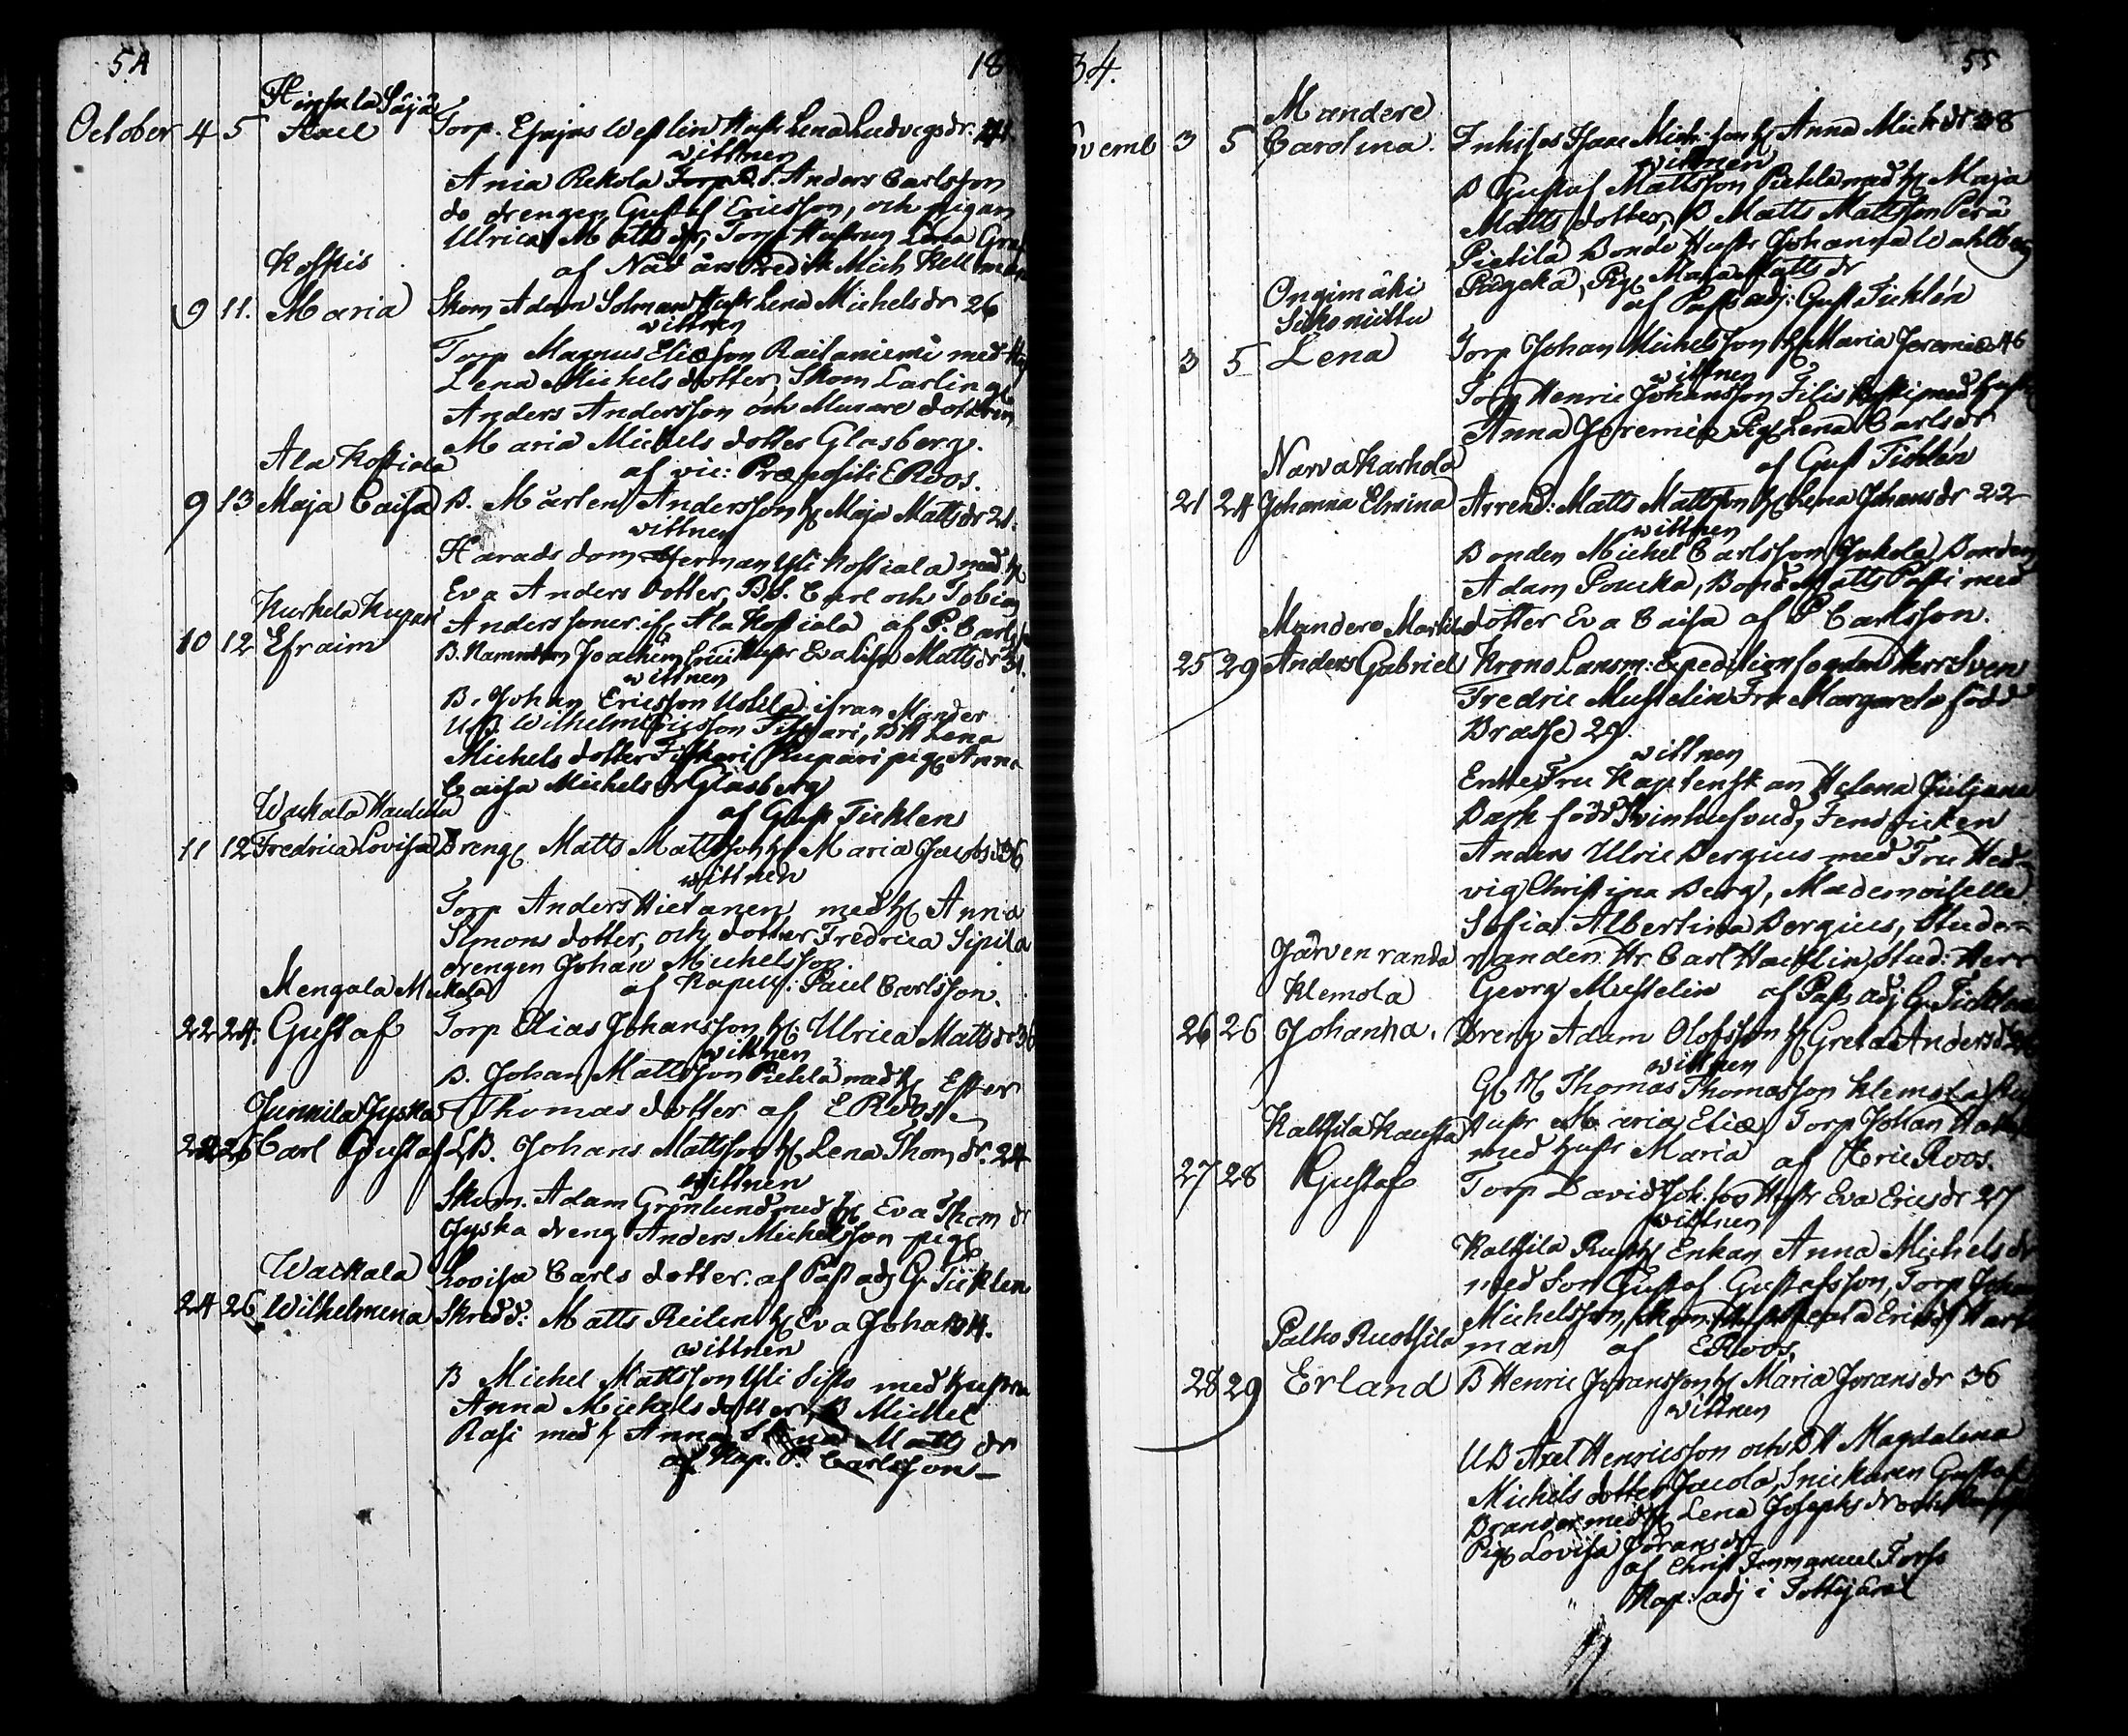 54
18
October
Himsala Säjä
4 5 Axel Torp. Esajas Westlin Hustr Lena Ludvigsdr. 41
wittnen
Ania Rekola Anders Carlsson
do drengen Gustaf Ericsson, och pigan
Ulrica Matts dr, Torp Hustrun Lena
af Nåd års Predik Mich Kellman
Koskis
9 11. Maria Skom Adam Solman Hustr Lena Michels dr 26
wittnen
Torp Magnus Eliæson Raitaniemi med
Lena Michels dotter, Skom Lärling
Anders Andersson och Murare dottren
Maria Michels dotter Glasberg.
af vic: Præpositi E Roos.
Ala Koskiala
9 13 Maja Caisa B. Mårten Andersson H Maja Matts dr 21.
wittnen
Härads dom Herman Yli Koskiala med H
Eva Anders dotter, B.S. Carl och Tobias
Anderssoner if Ala Koskiala af P. Carls
Kurkela Kupari
10 12 Efraim B. Joachim Hustr Eva Lisa Matts dr 31.
wittnen
B. Johan Ericsson Uskila ifrån Mander
U.B. Wilhelm Ericsson Fiskari, BH Lena
Michels dotter Fiskari Kupari pig Anna
Caisa Michels dr Glasberg
af Gust Ticklen
Wackala Hautalla
11 12 Fredrica Lovisa Dreng Matts Mattsson H Maria Jacobs dr 36
wittnen
Torp Anders Hietanen med H Anna
Simons dotter, och dotter Fredrica Sipilä
drengen Johan Michelsson
af Kapell: Paul Carlsson.
Mengala Mickola
22 24. Gustaf Torp Elias Johansson H. Ulrica Matts dr 36
wittnen
B. Johan Mattsson Pietilä med H Ester
Thomas dotter af E Roos.
Junnila Jyska
24 25 Carl Gustaf LB. Johans Mattsson H Lena Thom dr. 24
wittnen
Skom. Adam Grönlund med H Eva Thom dr
Jyska dreng Anders Michelsson pig
Lovisa Carls dotter. af Past adj G Ticklen
Wackala
24 26 Wilhelmina Skredd: Matts Reilin H Eva Johan 34.
wittnen
B Michel Mattsson Yli Sifto med Hustrun
Anna Michels dotter, B Michel
Rasi med H Anna Matts dr
af Kap. P. Carlsson
34.
55
Novemb
Mandere
3 5 Carolina. Inhises Isaac Mich:son H Anna Mich dr 28
wittnen
B Gustaf Mattsson Pietilä med H Maja
Matts dotter, B Matts Mattsson Perä
Pietilä Bonde Hustr Johanna Wahlberg
Pig Maja Matts dr
af Past adj: Gust Ticklén
Ongimäki
Siikoniittu
3 5 Lena Torp Johan Michelsson H Maria Jeremiæ 46
wittnen
Torp Henric Johansson Filis Koski med Hustr
Anna Jeremiæ Pig Lena Carls dr
af Gust Ticklén
Narva Karhola
21 24 Johanna Elvina Arrend: Matts Mattsson H Lena Johans dr 22
wittnen
Bonden Michel Carlsson Jukola, Bonden
Adam Poucka, Bond Matts Passi med
dotter Eva Caisa af P Carlsson.
Mandere Marttila
25 29 Anders Gabriel Krono Länsm: Expeditionsfogden Herr Sven
Fredric Mustelin Fru Margareta född
Brasse 29.
wittnen
Enke Fru Kaptenskan Helena Juliana
Bark född Svinhufvud, Fendricken
Anders Ulric Bergius med Fru Hed-
vig Christina Berg, Mademoiselle
Sofia Albertina Bergius, Studer-
randen Hr. Carl Hacklin, Stud: Herr
Georg Mustelin af Past adj G. Ticklen
Järvenranda
Klemola
26 26 Johanna. Dreng Adam Olofsson H Greta Anders dr
wittnen
G H Thomas Thomasson Klemola
Hustr Maria Eliæ, Torp Johan
med Hustr Maria af Eric Roos.
Kalkila Kausta
27 28 Gustaf Torp David Joh:son Hustr Eva Erics dr 27
wittnen
Kalkila Rusth Enkan Anna Michels dr
med Son Gustaf Gustafsson, Torp Johan
Michelsson, Erics dr Hart
man af E Roos.
Palho Ruotsila
28 29 Erland B Henric Joransson H Maria Jorans dr 36
wittnen
UB Axel Henricsson och BH Magdalena
Michels dotter Jacola, Snickaren Gustaf
Brander med H Lena Josephs dr och
Pig Lovisa Jorans dr
af Christ Immanuel Forss
Kap: adj i Tottijärvi